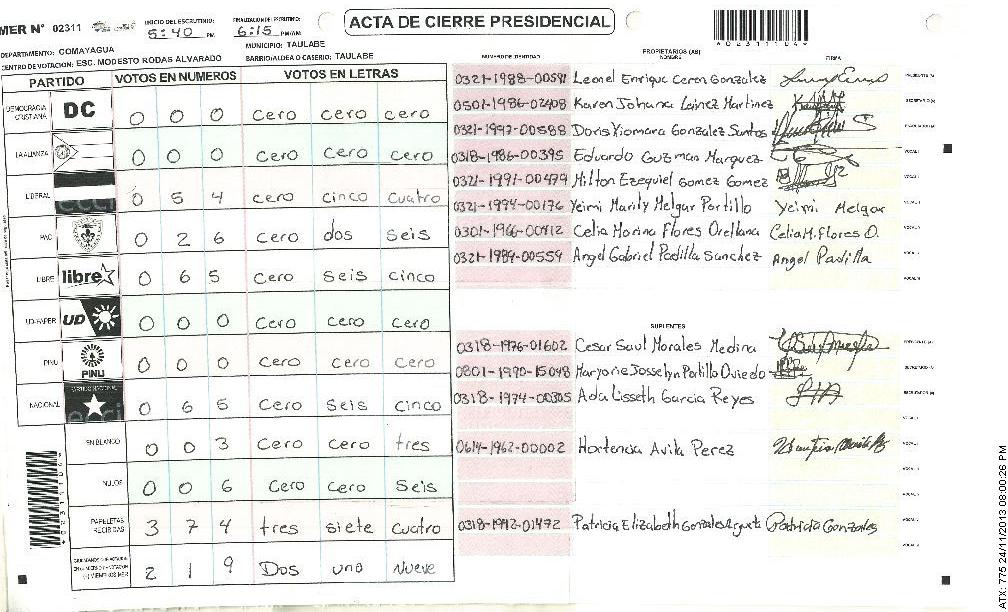 MER N° 02311
INICIO DEL ESCRUTINIO: 5:40 PM
FINALIZACION ESCRUTINIO: 6:15 PM/AM
ACTA DE CIERRE PRESIDENCIAL
*02311104*
DEPARTAMENTO: COMAYAGUA
MUNICIPIO: TAULABE
CENTRO DE VOTACION: ESC. MODESTO RODAS ALVARADO
BARRIO/ALDEA O CASERIO: TAULABE
PARTIDO VOTOS EN NUMEROS VOTOS EN LETRAS
DEMOCRACIA CRISTIANA DC 0 0 0 cero cero cero
LA ALIANZA 0 0 0 cero cero cero
LIBERAL 0 5 4 cero cinco cuatro
PAC 0 2 6 cero dos seis
LIBRE libre 0 6 5 cero seis cinco
UD-FAPER UD 0 0 0 cero cero cero
PINU PINU 0 0 0 cero cero cero
NACIONAL PARTIDO NACIONAL 0 6 5 cero seis cinco
EN BLANCO 0 0 3 cero cero tres
NULOS 0 0 6 cero cero seis
PAPELETAS RECIBIDAS 3 7 4 tres siete cuatro
2 1 9 Dos uno Nueve
NUMERO DE IDENTIDAD PROPIETARIOS (AS) NOMBRE FIRMA
0321-1988-00591 Leonel Enrique Ceron Gonzalez PRESIDENTE (A)
0501-1986-02408 Karen Johana Leinez Martinez SECRETARIO (A)
0321-1997-00588 Doris Xiomara Gonzalez Suntos ESCRUTADOR (A)
0318-1986-00395 Eduardo Guzman Marquez VOCAL I
0321-1991-00479 Milton Ezequiel Gomez Gomez
0321-1994-00176 Yeimi Marily Melgar Portillo Yeimi Melgar
0301-1966-00412 Celia Morina Flores Orellana Celia M. Flores O.
0321-1989-00559 Angel Gabriel Padilla Sanchez Angel Padilla
SUPLENTES
0318-1976-01602 Cesar Saul Morales Medina PRESIDENTE (A)
0801-1990-15048 Marjorie Josselyn Portillo Oviedo SECRETARIO (A)
0318-1974-00305 Ada Lisseth Garcia Reyes ESCRUTADOR (A)
0614-1962-00002 Hortencia Avila Perez
0318-1992-01472 Patricia Elizabeth Gonzales Patricia Gonzales
*02311104*
ATX: 775 24/11/2013 08:00:26 PM